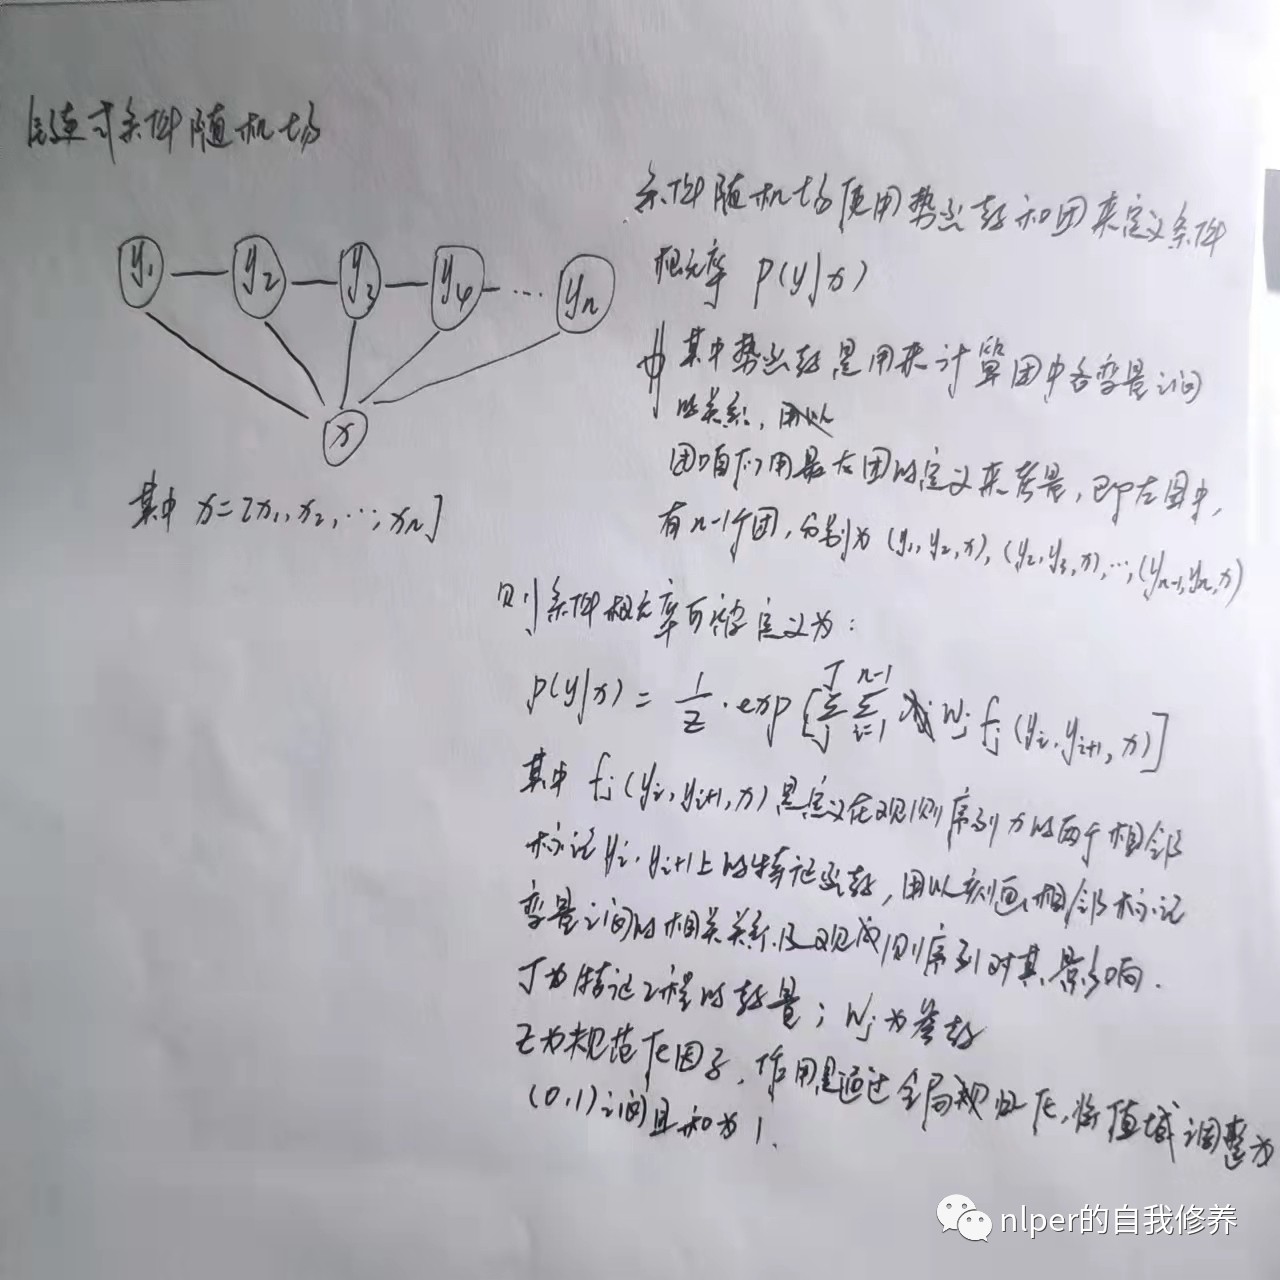 链式条件随机场
y1 y2 y3 y4 ... yn
x
其中 x=[x1, x2, ..., xn]
条件随机场使用势函数和团来定义条件
概率 P(y|x)
其中势函数是用来计算团中各变量之间
的关系,
团咱们用最大团的定义来考量,即左图中,
有n-1个团,分别为 (y1, y2, x), (y2, y3, x), ..., (yn-1, yn, x)
则条件概率可被定义为:
P(y|x) = 1/Z · exp[∑j^J ∑i=1^n-1 wj fj (yi, yi+1, x)]
其中 fj (yi, yi+1, x) 是定义在观测序列x的两个相邻
标记 yi, yi+1 上的特征函数,用以刻画相邻标记
变量之间的相关关系及观测序列对其影响.
J为特征工程的数量; wj 为参数
Z为规范化因子,作用是通过全局规归化,将值域调整为
(0,1)之间且和为1.
nlper的自我修养